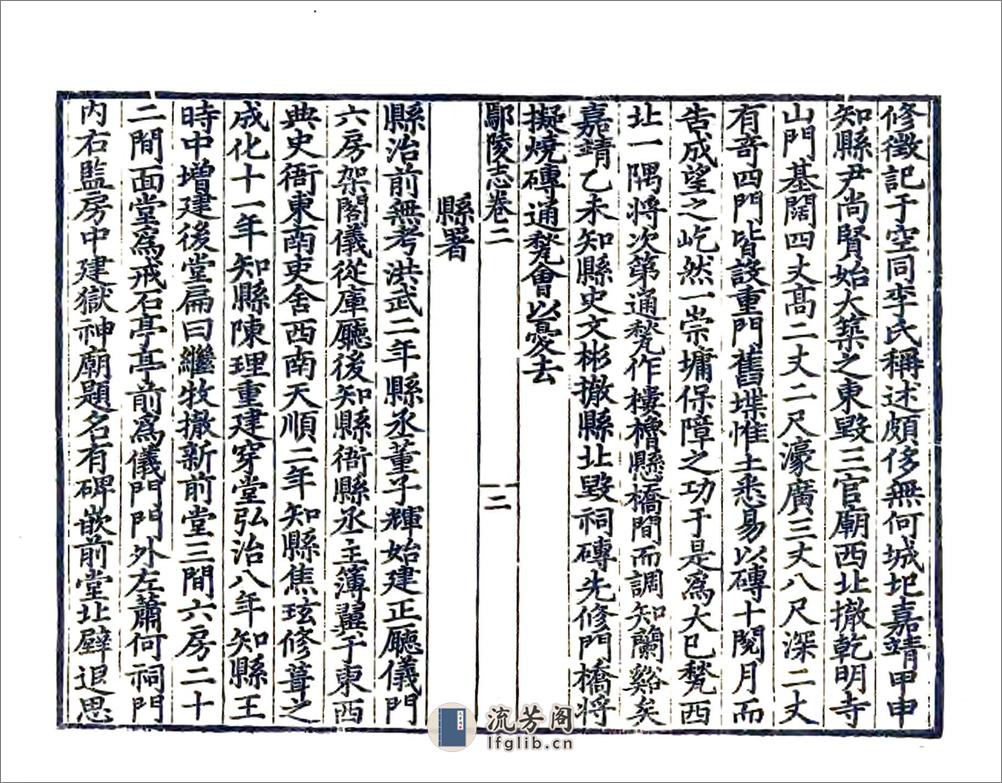 修徵記于空同李氏稱述頗侈無何城圮嘉靖甲申
知縣尹尚賢始大築之東毀三官廟西北撤乾明寺
山門基闊四丈高二丈二尺濠廣三丈八尺深二丈
有奇四門皆設重門舊堞惟土悉易以磚十閱月而
告成望之屹然一崇墉保障之功于是為大已甃西
北一隅將次第通甃作樓櫓懸橋間而調知蘭谿矣
嘉靖乙未知縣史文彬撤縣北毀祠磚先修門橋將
擬燒磚通甃會以憂去
鄢陵志卷二 三
縣署
縣治前無考洪武二年縣丞董子輝始建正廳儀門
六房架閣儀從庫廳後知縣衙縣丞主簿翼于東西
典史衙東南吏舍西南天順二年知縣焦玹修葺之
成化十一年知縣陳理重建穿堂弘治八年知縣王
時中增建後堂扁曰繼牧撤新前堂三間六房二十
二間面堂為戒石亭亭前為儀門門外左蕭何祠門
內右監房中建獄神廟題名有碑嵌前堂北壁退思
流芳阁
lfglib.cn